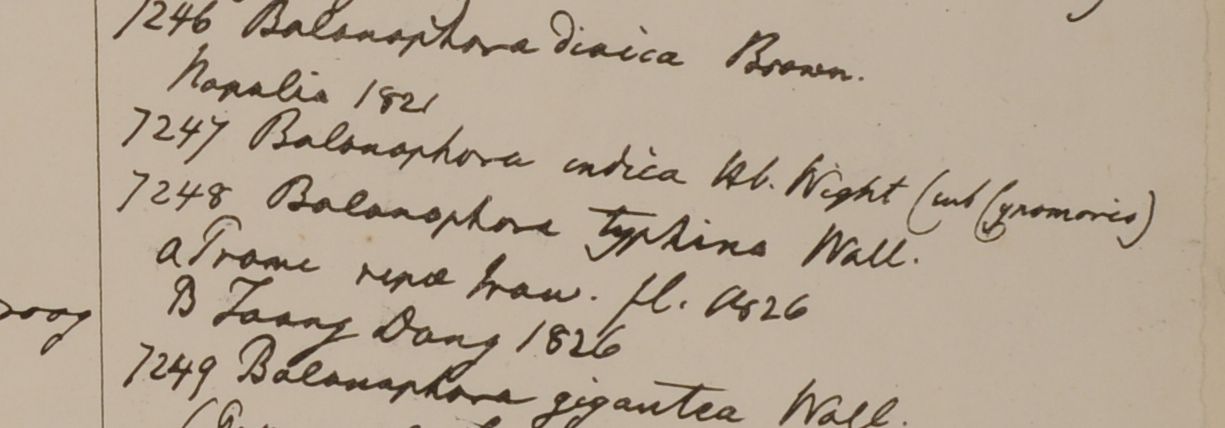 7246 Balanophora dioica Brown.
Napalia 1821
7247 Balanophora indica Hb. Wight (sub Cynomorio)
7248 Balanophora typhina Wall.
a Prome ripæ Iraw. fl. 1826
B Taong Dong 1826
7249 Balanophora gigantea Wall.